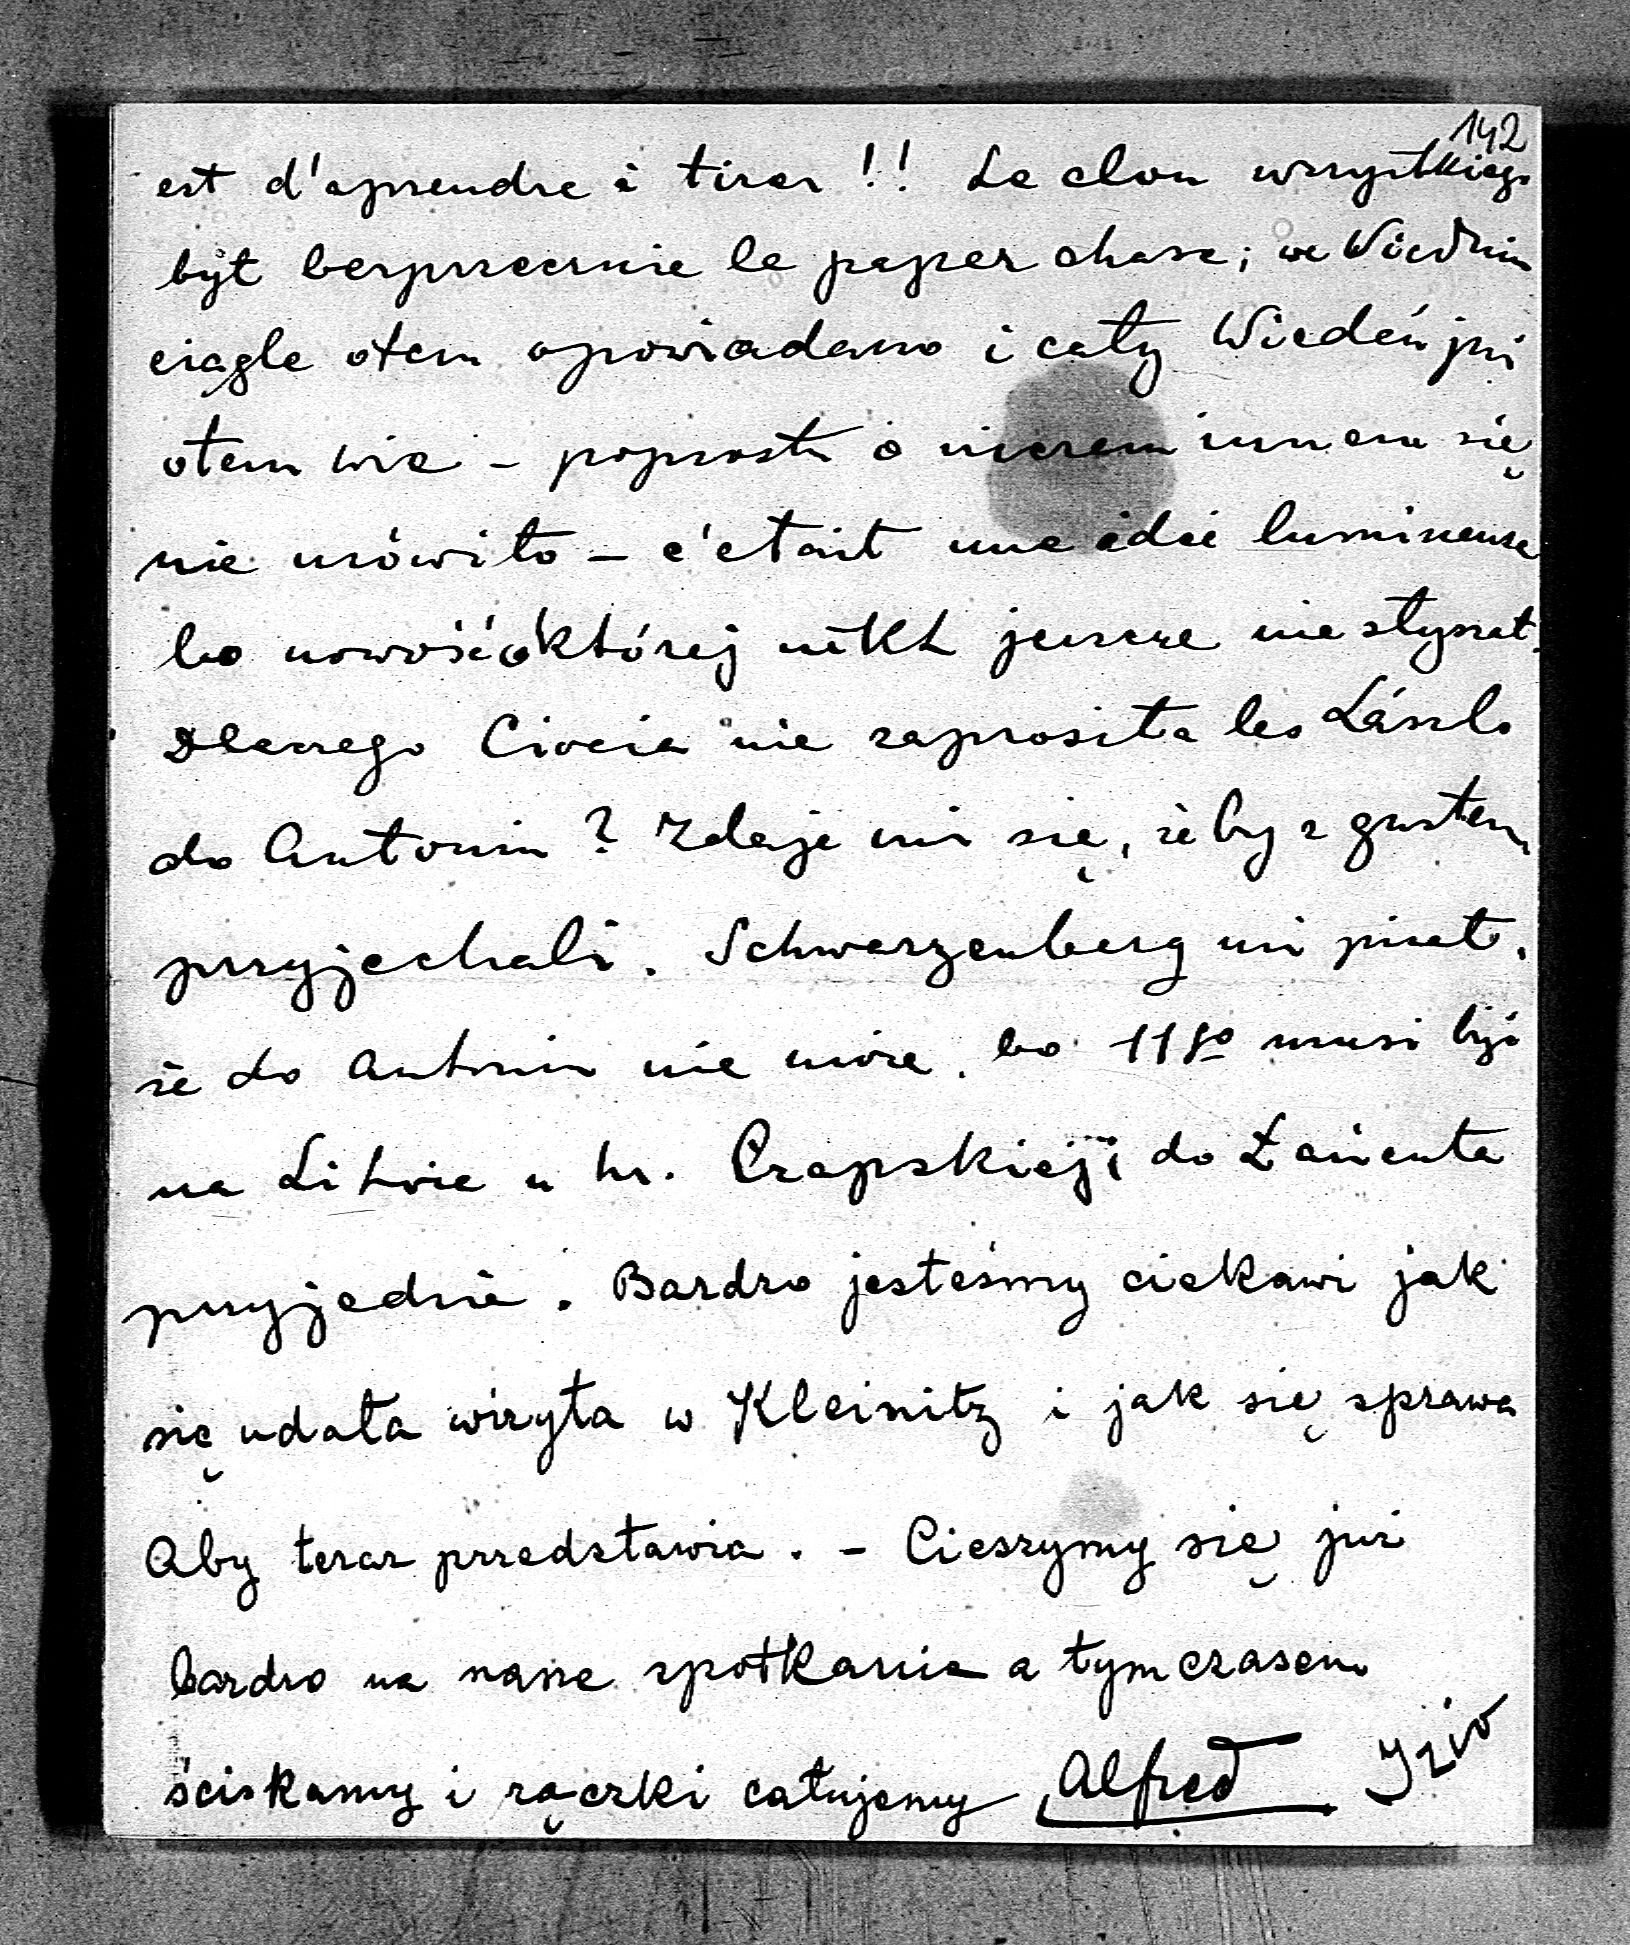 142
est d'aprendre à tirer !! Le clou wszystkiego
był bezprzecznie le paper chase; we Wiedniu
ciągle otem opowiadano i cały Wiedeń już
otem wie – poprostu o niczem innem się
nie mówiło – c'etait une idée lumineuse
bo nowość o której nikt jeszcze nie słyszał.
Dlaczego Ciocia nie zaprosiła les László
do Antonin ? Zdaje mi się, że by z gustem
przyjechali. Schwarzenberg mi pisał,
że do Antonin nie może, bo 11go musi być
na Litwie u hr. Czapskiej; do Łańcuta
przyjedzie. Bardzo jesteśmy ciekawi jak
się udała wizyta w Kleinitz i jak się sprawa
Aby teraz przedstawia. – Cieszymy się już
bardzo na nasze spotkanie a tymczasem
ściskamy i rączki całujemy Alfred Jzio